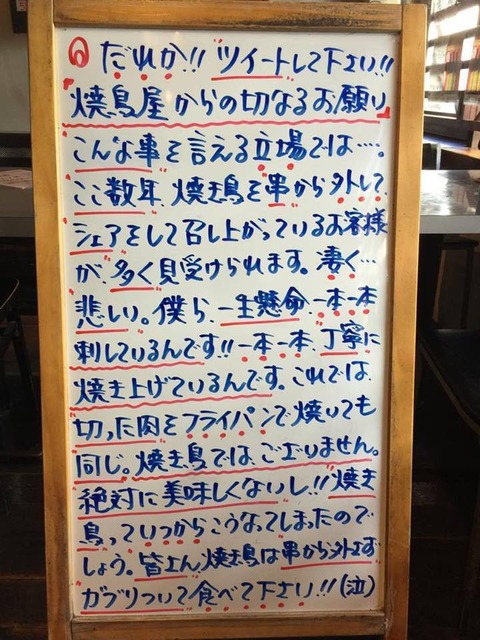 だれか!! ツイートして下さい!!
焼鳥屋からの切なるお願い
こんな事を言える立場では…。
ここ数年、焼き鳥を串から外して、
シェアをして召し上がっているお客様
が、多く見受けられます。凄く…
悲しい。僕ら、一生懸命、一本一本
刺しているんです!!一本一本、丁寧に
焼き上げているんです。これでは、
切った肉をフライパンで焼いても
同じ。焼き鳥ではございません。
絶対に美味しくないし!!焼き
鳥っていつからこうなってしまったので
しょう。皆さん、焼き鳥は串から外さず
ガブリついて食べて下さい!!(泣)